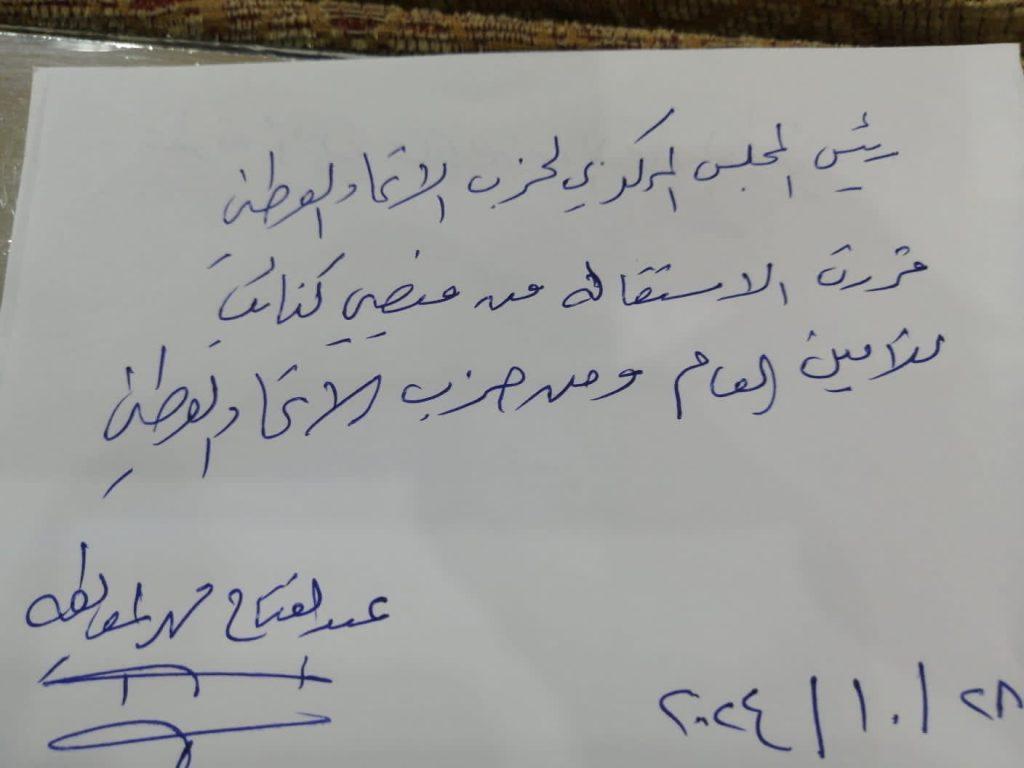 رئيس المجلس المركزي لحزب الاتحاد الوطني
قررت الاستقالة من منصبي كنائب
للامين العام ومن حزب الاتحاد الوطني
عبدالفتاح محمد المعايطه
٢٠٢٤/١٠/٢٨